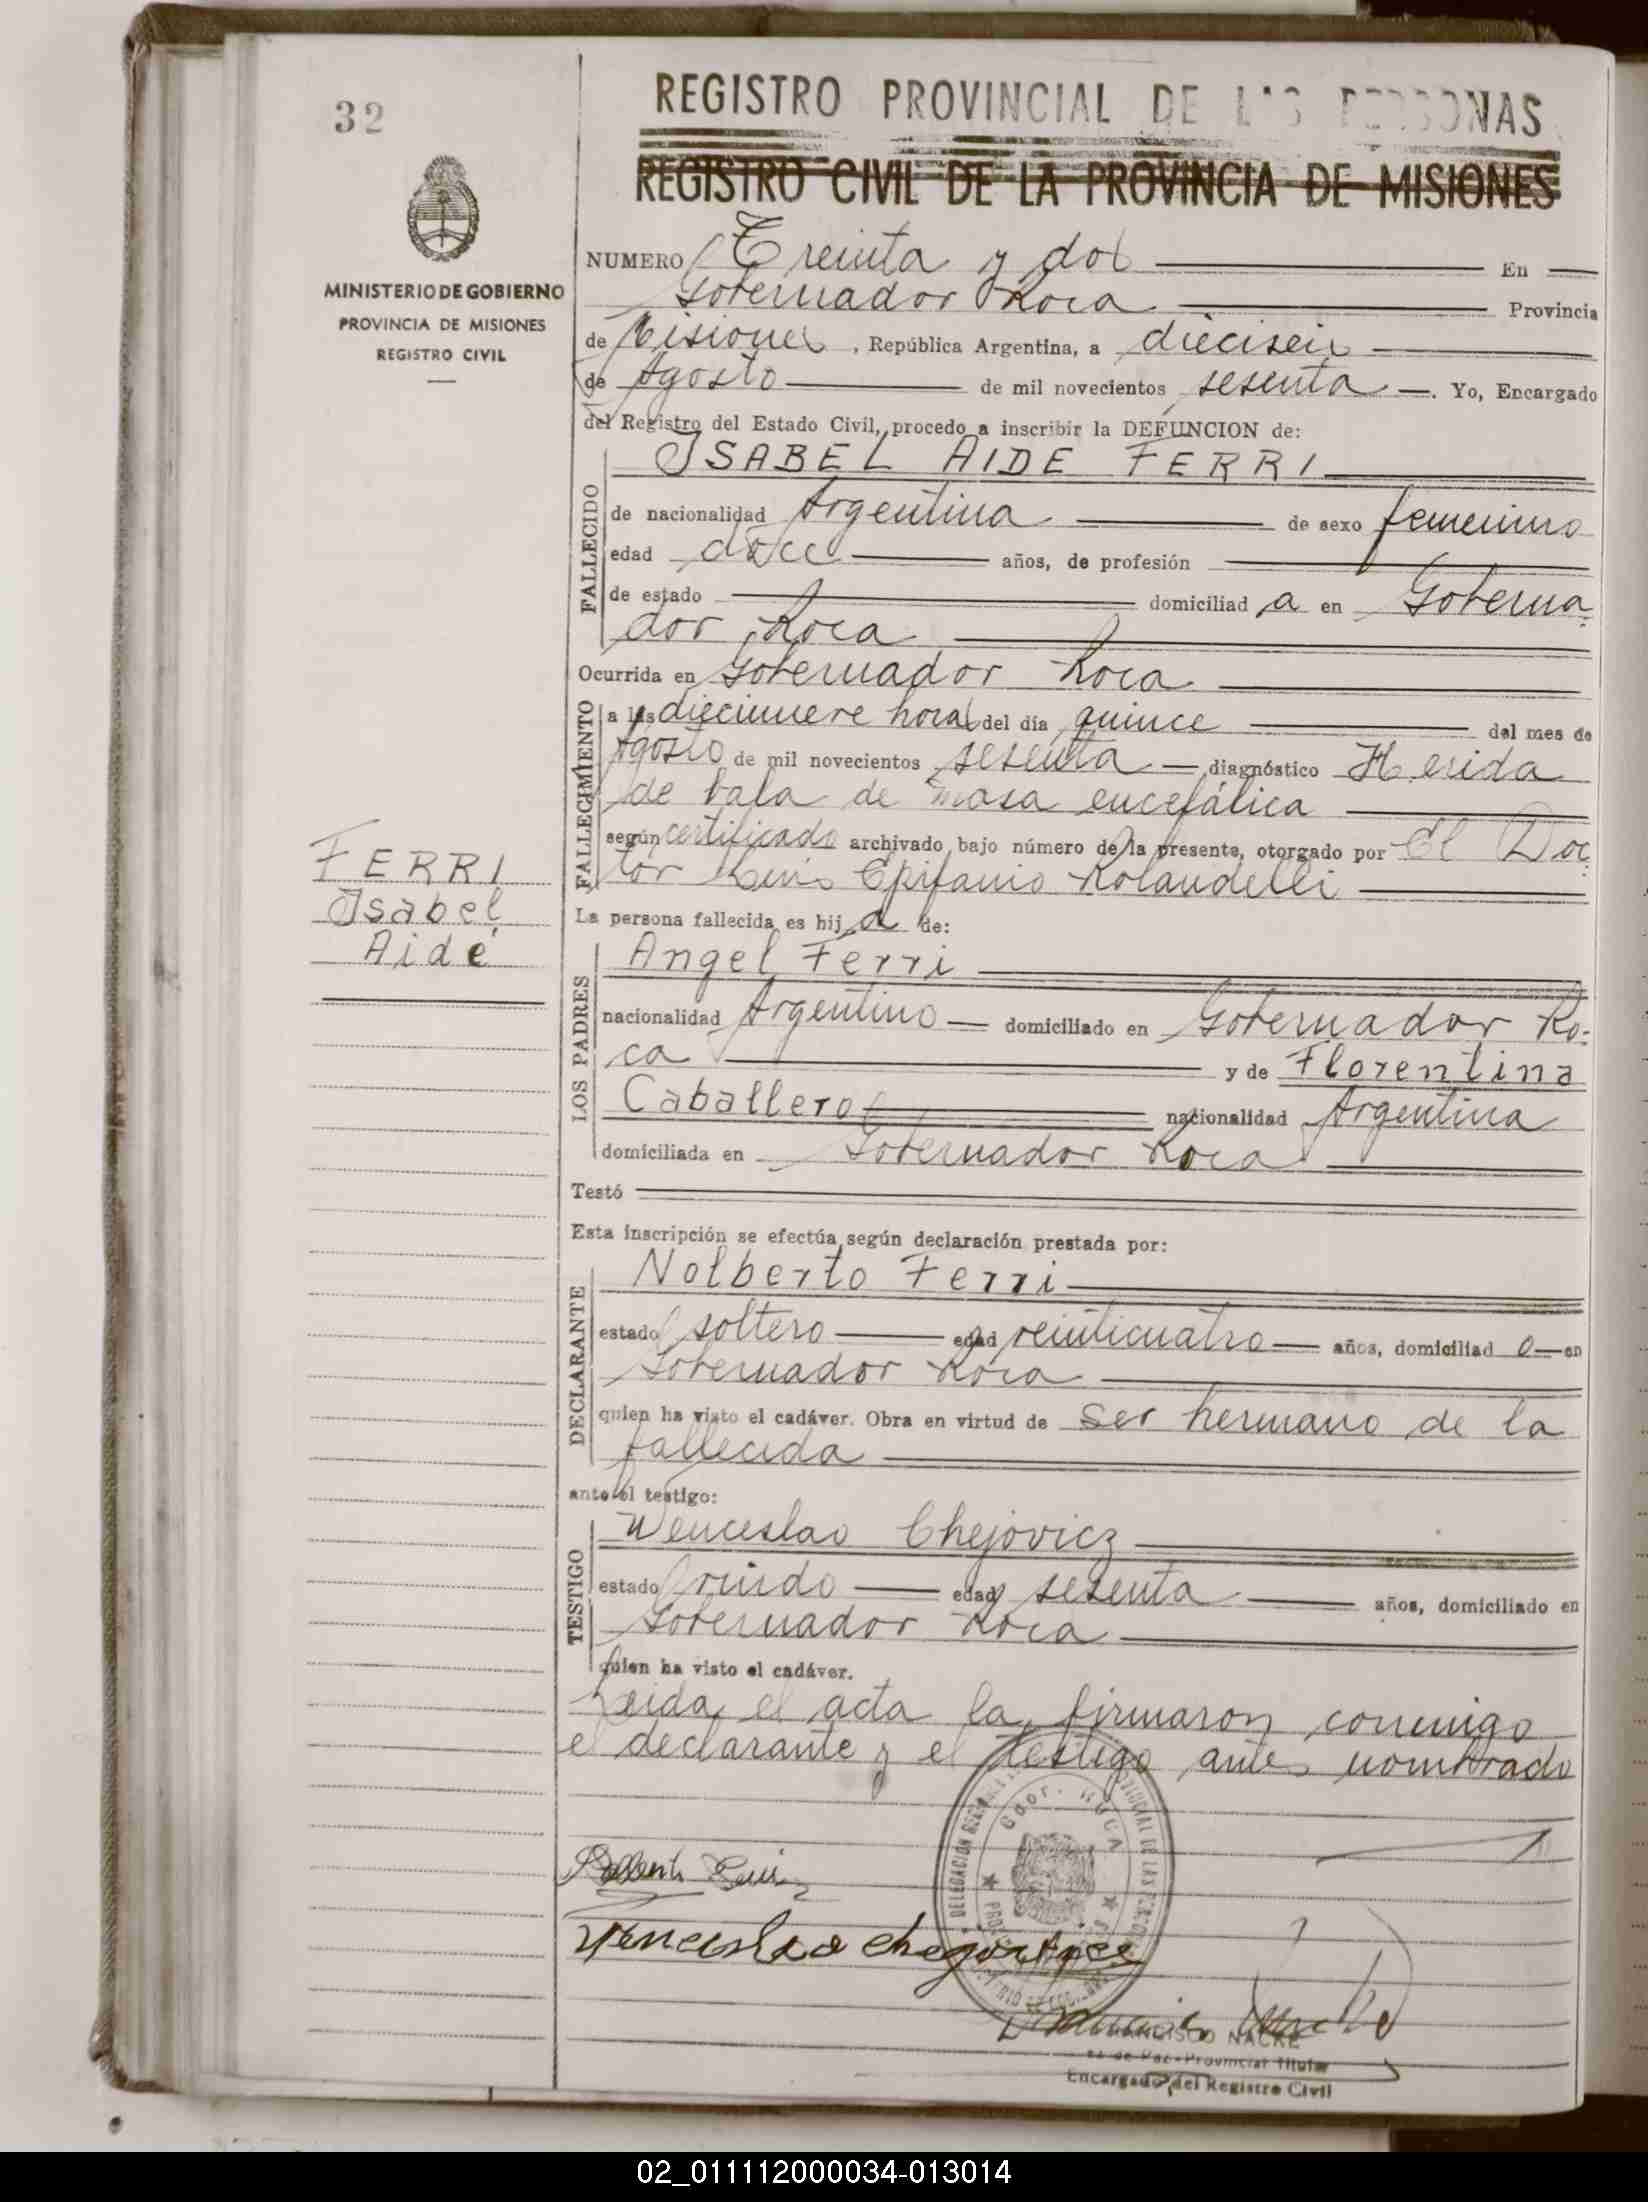 32
REGISTRO PROVINCIAL DE LAS PERSONAS
REGISTRO CIVIL DE LA PROVINCIA DE MISIONES
MINISTERIO DE GOBIERNO
PROVINCIA DE MISIONES
REGISTRO CIVIL
NUMERO Treinta y dos En
Gobernador Roca Provincia
de Misiones, República Argentina, a dieciseis
de Agosto de mil novecientos sesenta. Yo, Encargado
del Registro del Estado Civil, procedo a inscribir la DEFUNCION de:
ISABEL AIDE FERRI
FALLECIDO
de nacionalidad Argentina de sexo femenino
edad doce años, de profesión
de estado domiciliad a en Goberna
dor Roca
Ocurrida en Gobernador Roca
FALLECIMIENTO
a las diecinueve horas del día quince del mes de
Agosto de mil novecientos sesenta diagnóstico Herida
de bala de masa encefálica
según certificado archivado bajo número de la presente, otorgado por El Doc
tor Luis Epifanio Rolandelli
FERRI
Isabel
Aidé
La persona fallecida es hij a de:
LOS PADRES
Angel Ferri
nacionalidad Argentino domiciliado en Gobernador Ro-
ca y de Florentina
Caballero nacionalidad Argentina
domiciliada en Gobernador Roca
Testó
Esta inscripción se efectúa según declaración prestada por:
DECLARANTE
Nolberto Ferri
estado soltero edad veinticuatro años, domiciliad o en
Gobernador Roca
quien ha visto el cadáver. Obra en virtud de ser hermano de la
fallecida
ante el testigo:
TESTIGO
Wenceslao Chejovicz
estado viudo edad sesenta años, domiciliado en
Gobernador Roca
quien ha visto el cadáver.
Leida el acta la firmaron conmigo
el declarante y el testigo antes nombrado
Gdor. ROCA
FRANCISCO NACKE
Encargado del Registro Civil
02_011112000034-013014